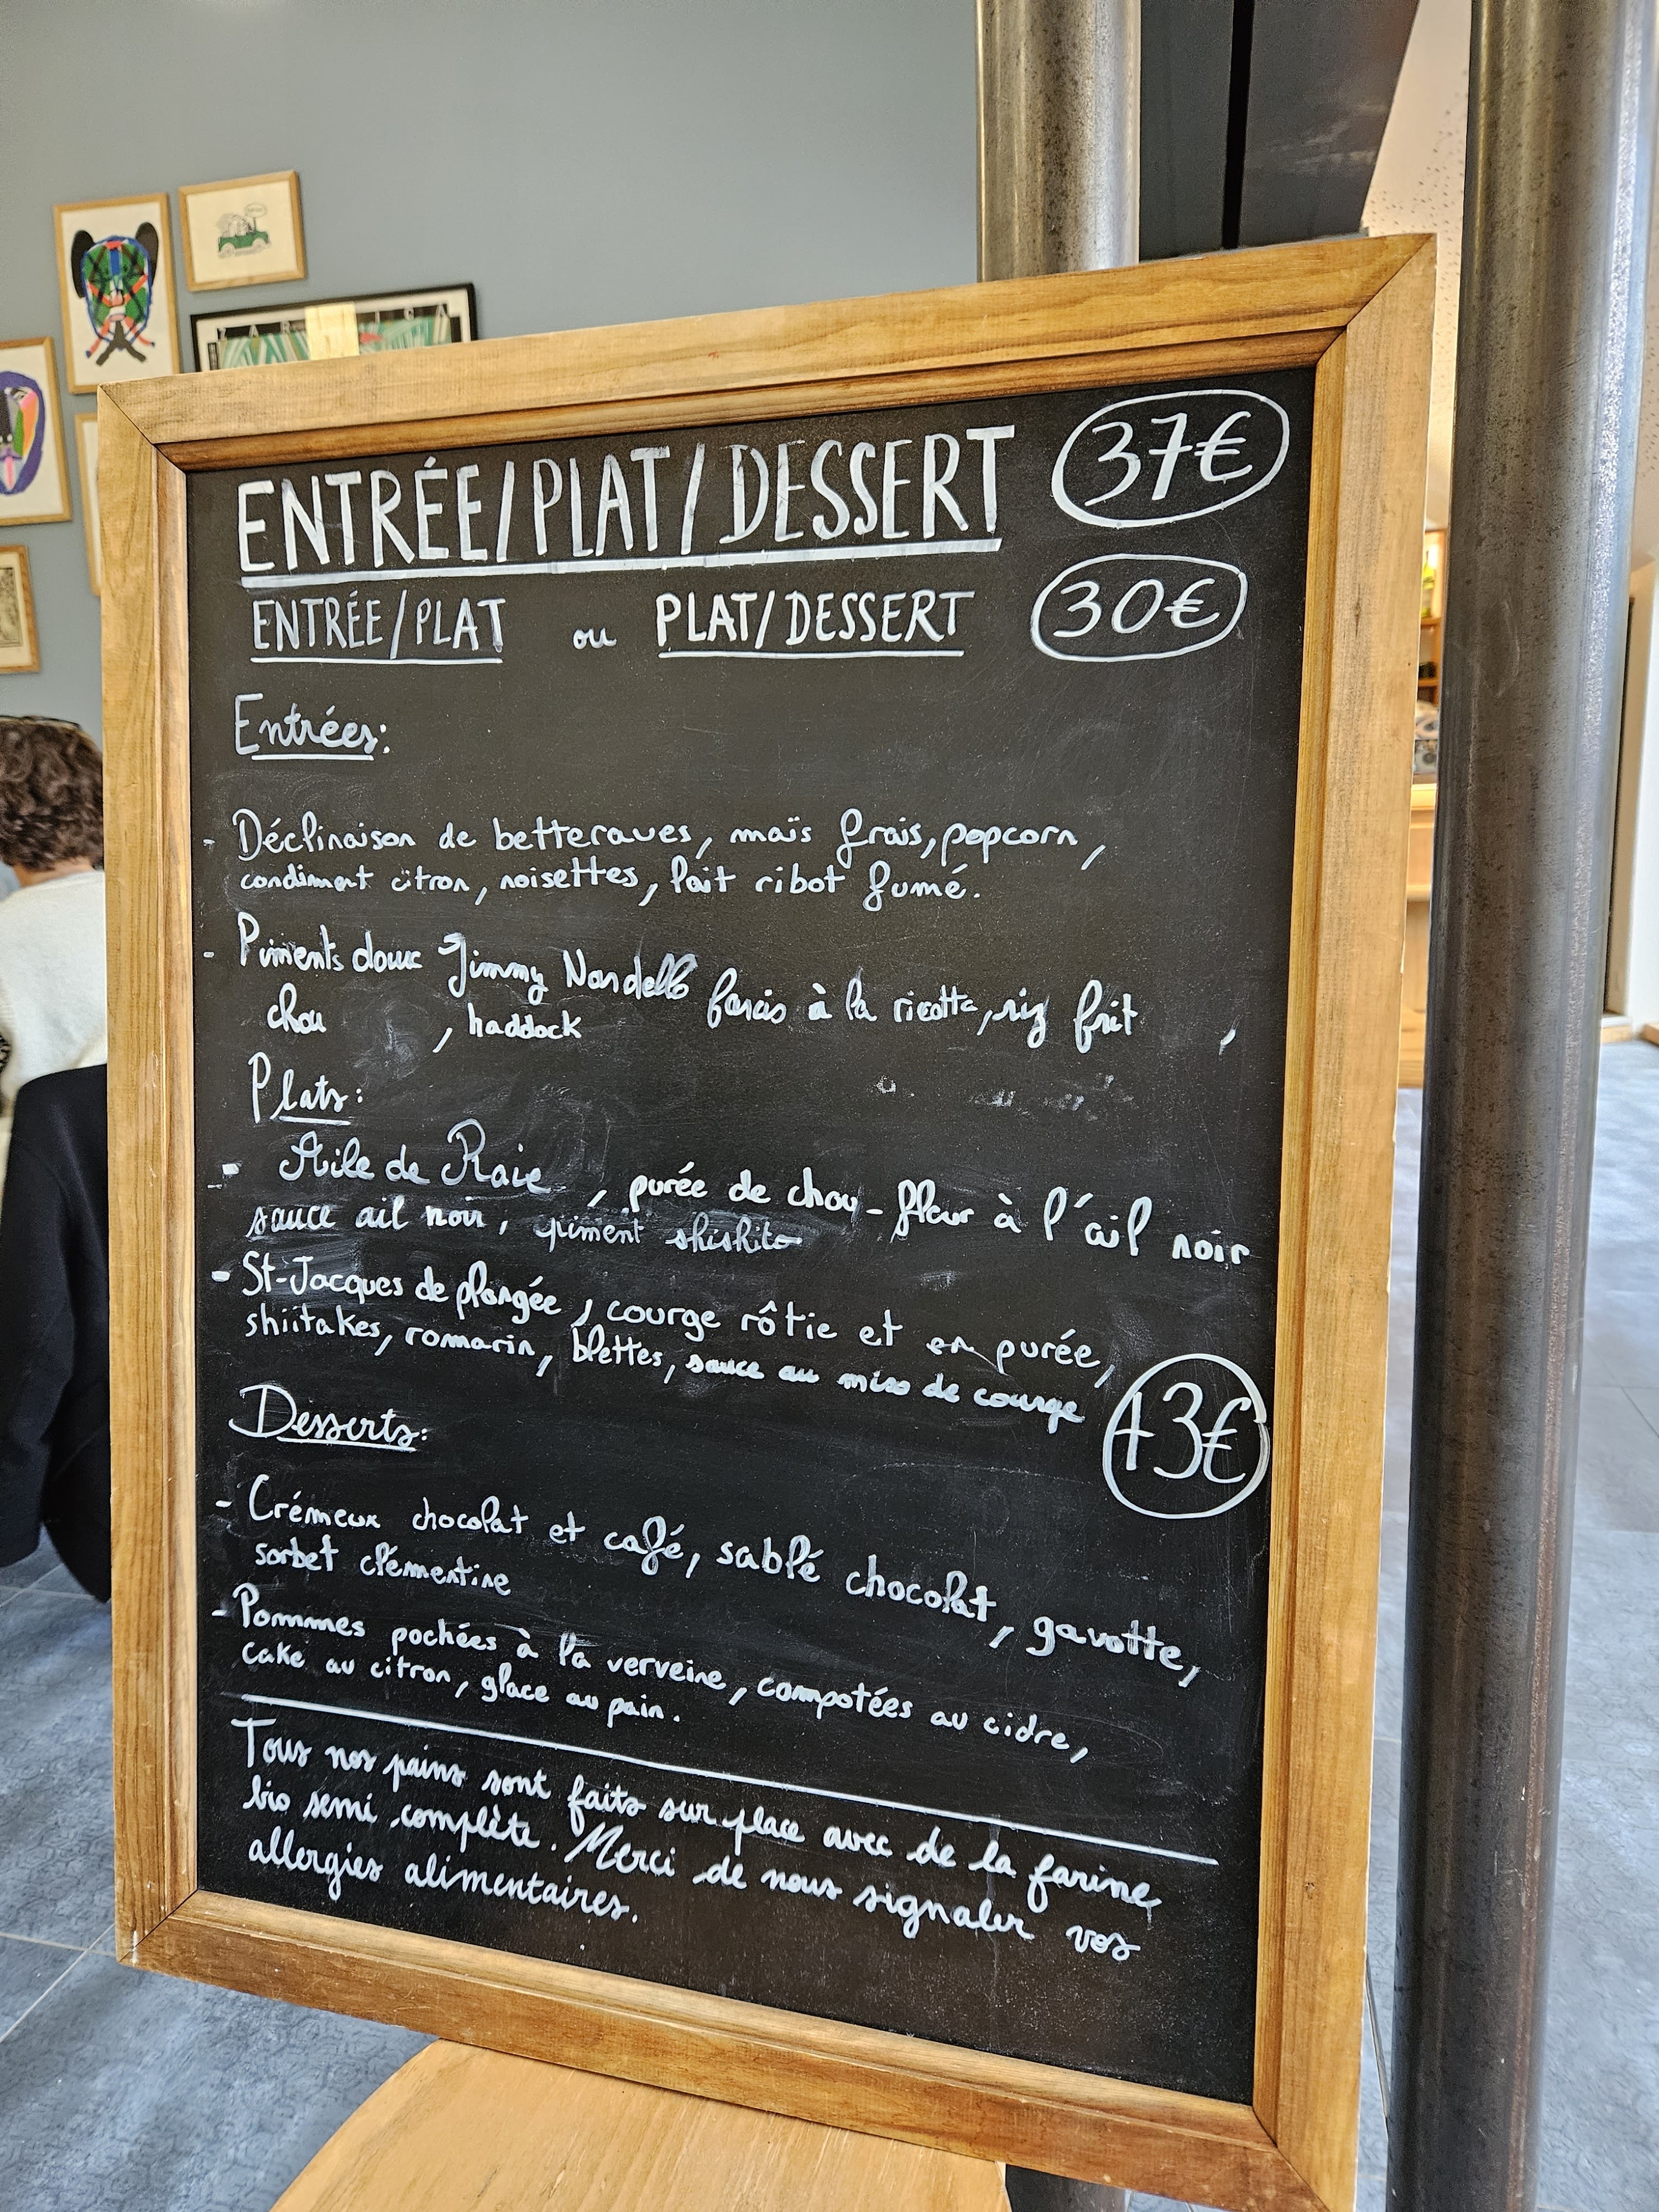 ENTRÉE/PLAT/DESSERT 37€
ENTRÉE/PLAT ou PLAT/DESSERT 30€
Entrées:
- Déclinaison de betteraves, maïs frais, popcorn,
condiment citron, noisettes, lait ribot fumé.
- Piments doux Jimmy Nardello farcis à la ricotta, riz frit,
chou, haddock
Plats:
- Aile de Raie, purée de chou-fleur à l'ail noir
sauce ail noir, piment shishito
- St-Jacques de plongée, courge rôtie et en purée,
shiitakes, romarin, blettes, sauce au miso de courge +3€
Desserts:
- Crémeux chocolat et café, sablé chocolat, gavotte,
sorbet clémentine
- Pommes pochées à la verveine, compotées au cidre,
cake au citron, glace au pain.
Tous nos pains sont faits sur place avec de la farine
bio semi complète. Merci de nous signaler vos
allergies alimentaires.